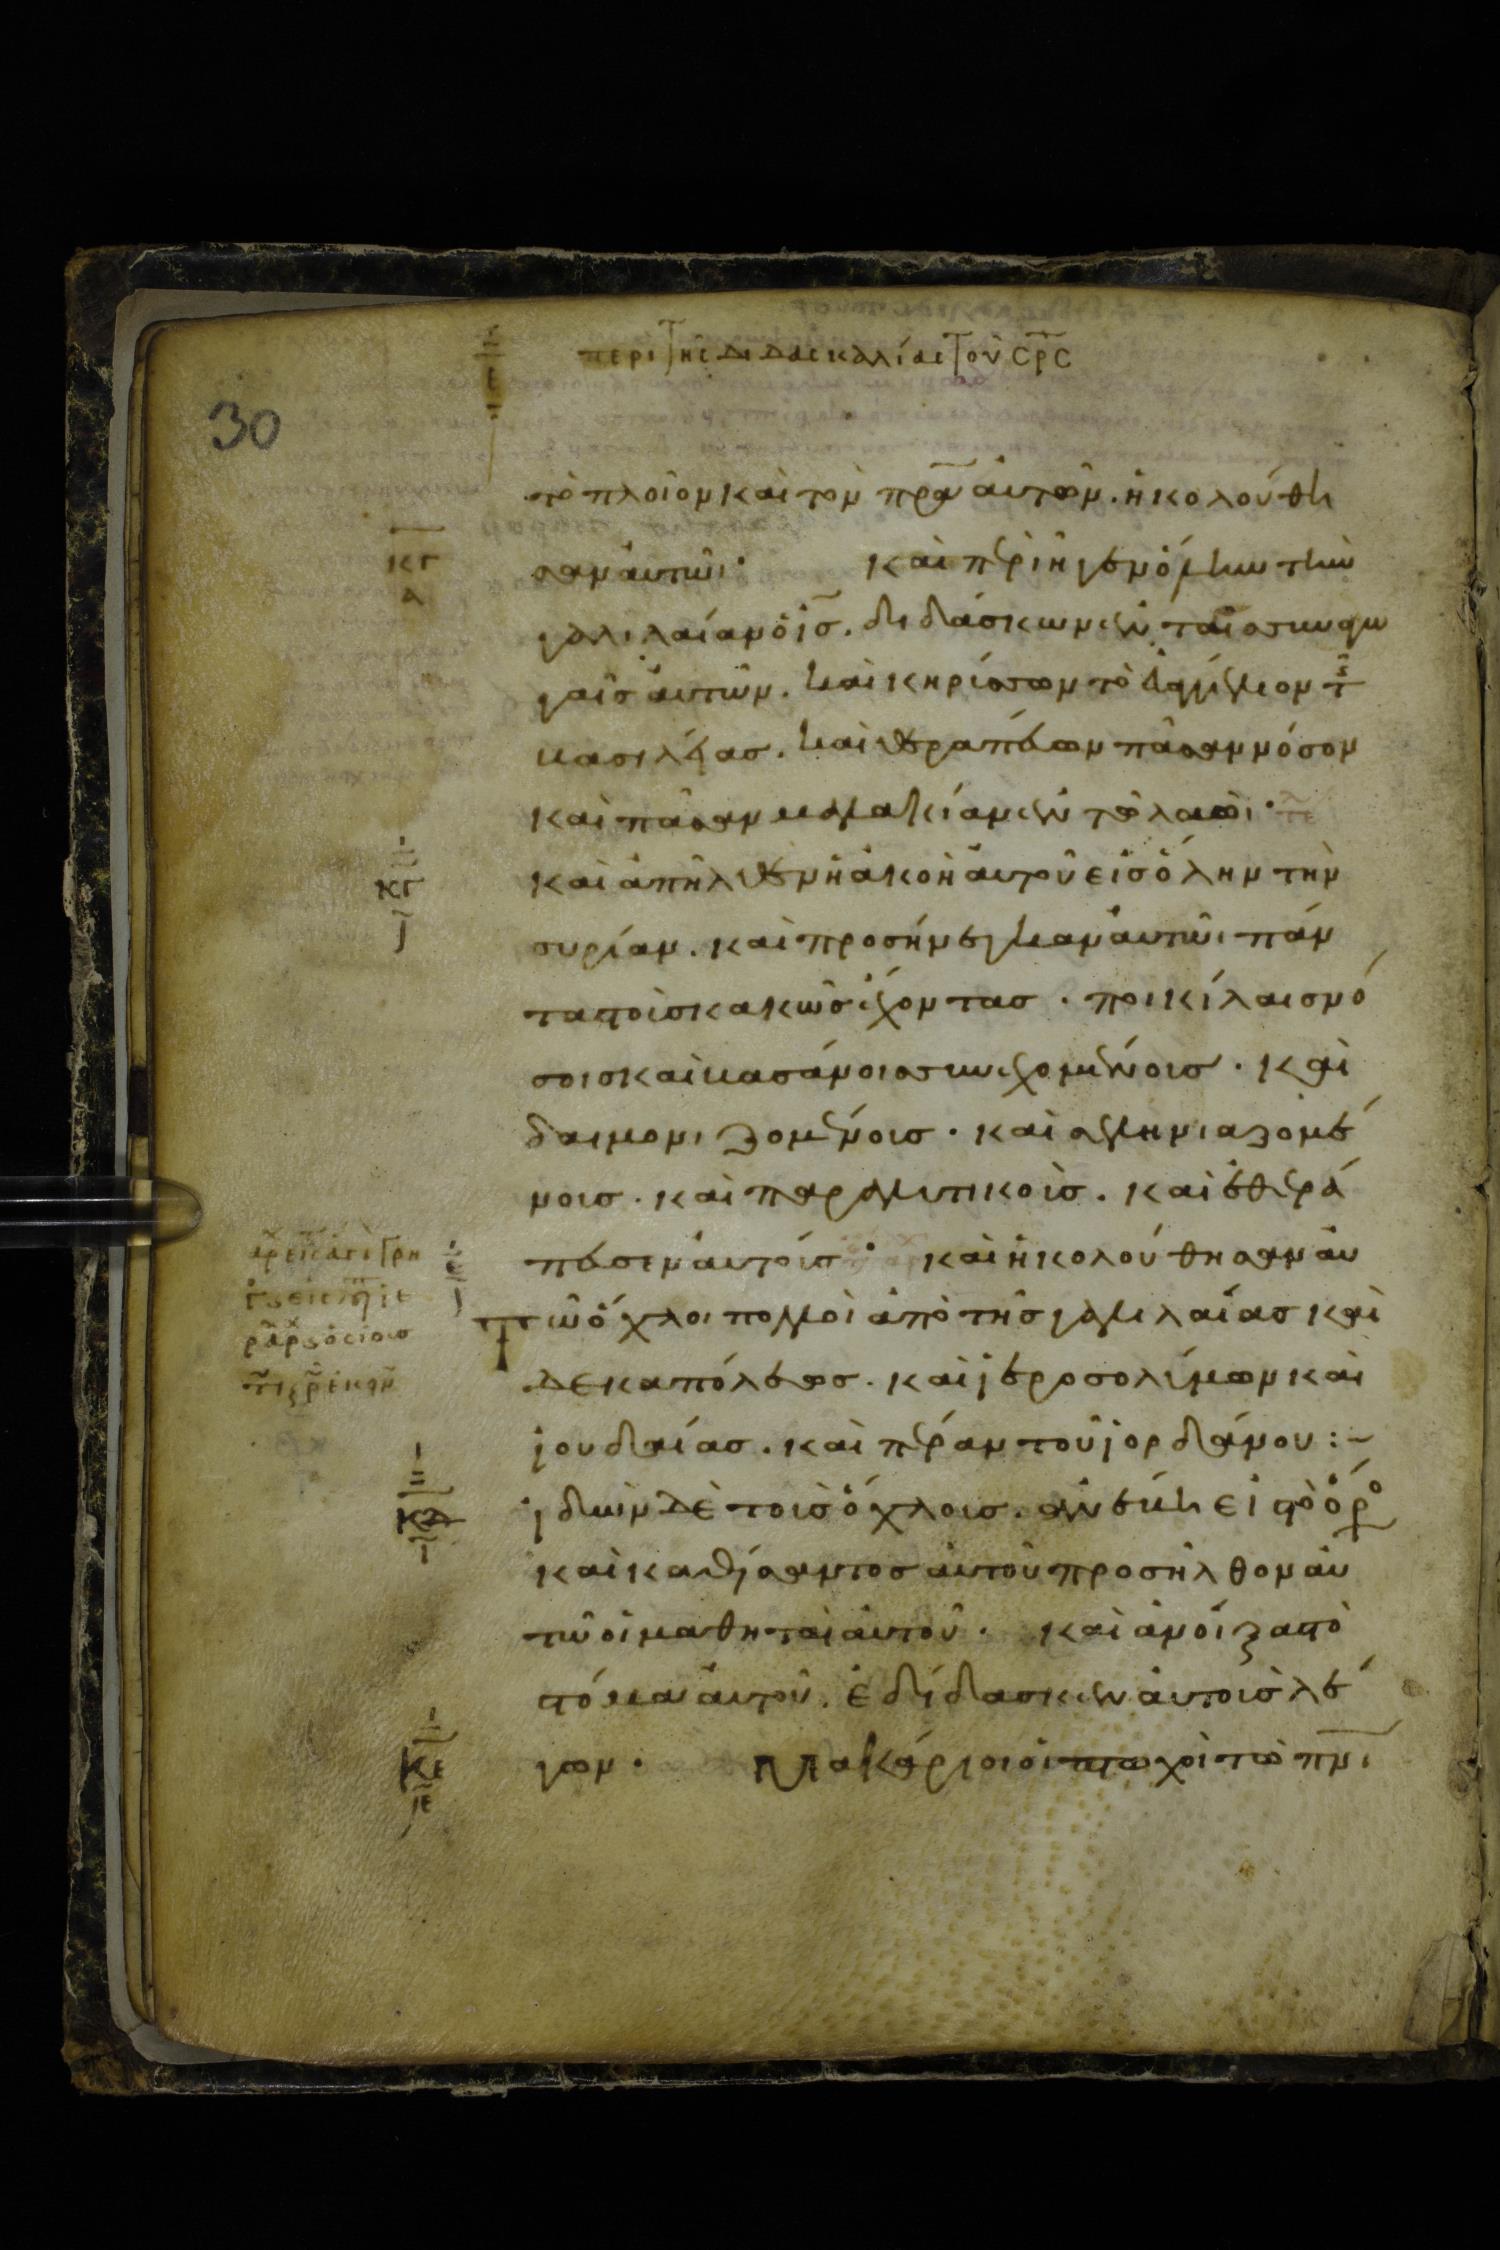 περὶ τῆς διδασκαλίας τοῦ σρς
30
τὸ πλοῖον καὶ τὸν πρα αὐτῶν. ἠκολούθη
κγ
α
σαν αὐτῶι· καὶ περιῆγεν ὅλην τὴν
γαλιλαίαν ὁ ις. διδάσκων ἐν ταῖς συναγω
γαῖς αὐτῶν. καὶ κηρύσσων τὸ εὐαγγέλιον τῆς
βασιλείας. καὶ θεραπεύων πᾶσαν νόσον
καὶ πᾶσαν μαλακίαν ἐν τῶ λαῶι·
κγ
γ
καὶ ἀπῆλθεν ἡ ἀκοὴ αὐτοῦ εἰς ὅλην τὴν
συρίαν. καὶ προσήνεγκαν αὐτῶι πάν
τας τοὺς κακῶς ἔχοντας. ποικίλαις νό
σοις καὶ βασάνοις συνεχομένους. καὶ
δαιμονιζομένους. καὶ σεληνιαζομέ
νους. καὶ παραλυτικοὺς. καὶ ἐθερά
πευσεν αὐτούς· καὶ ἠκολούθησαν αὐ
τῶ ὄχλοι πολλοὶ ἀπὸ τῆς γαλιλαίας καὶ
δεκαπόλεως. καὶ ἱεροσολύμων καὶ
ἰουδαίας. καὶ πέραν τοῦ ἰορδάνου:~
κδ
ι
ἰδὼν δὲ τοὺς ὄχλους. ἀνέβη εἰς τὸ ὄρο
καὶ καθίσαντος αὐτοῦ προσῆλθον αὐ
τῶ οἱ μαθηταὶ αὐτοῦ. καὶ ἀνοίξας τὸ
στόμα αὐτοῦ. ἐδίδασκεν αὐτοὺς λέ
κε
ιε
γων· Μακάριοι οἱ πτωχοὶ τῶ πνι